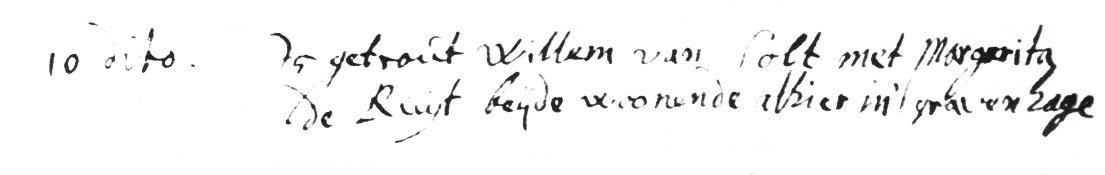 10 dito. Is getroút Willem van Solt met Margarita
De Ruijt beijde woonende alhier in 's gravenhage